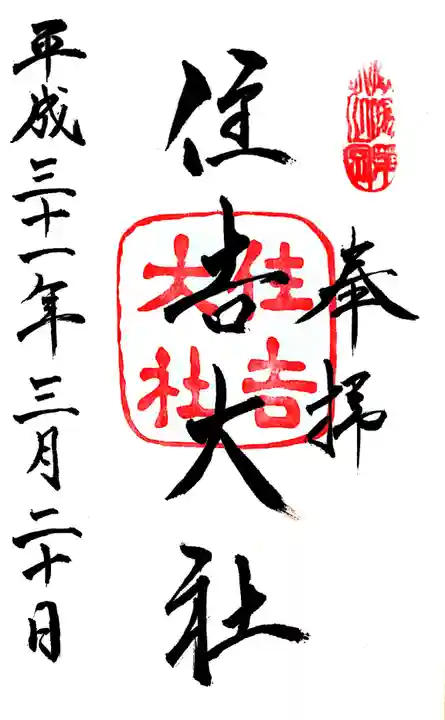 奉拝
住吉大社
住吉
大社
平成三十一年三月二十日